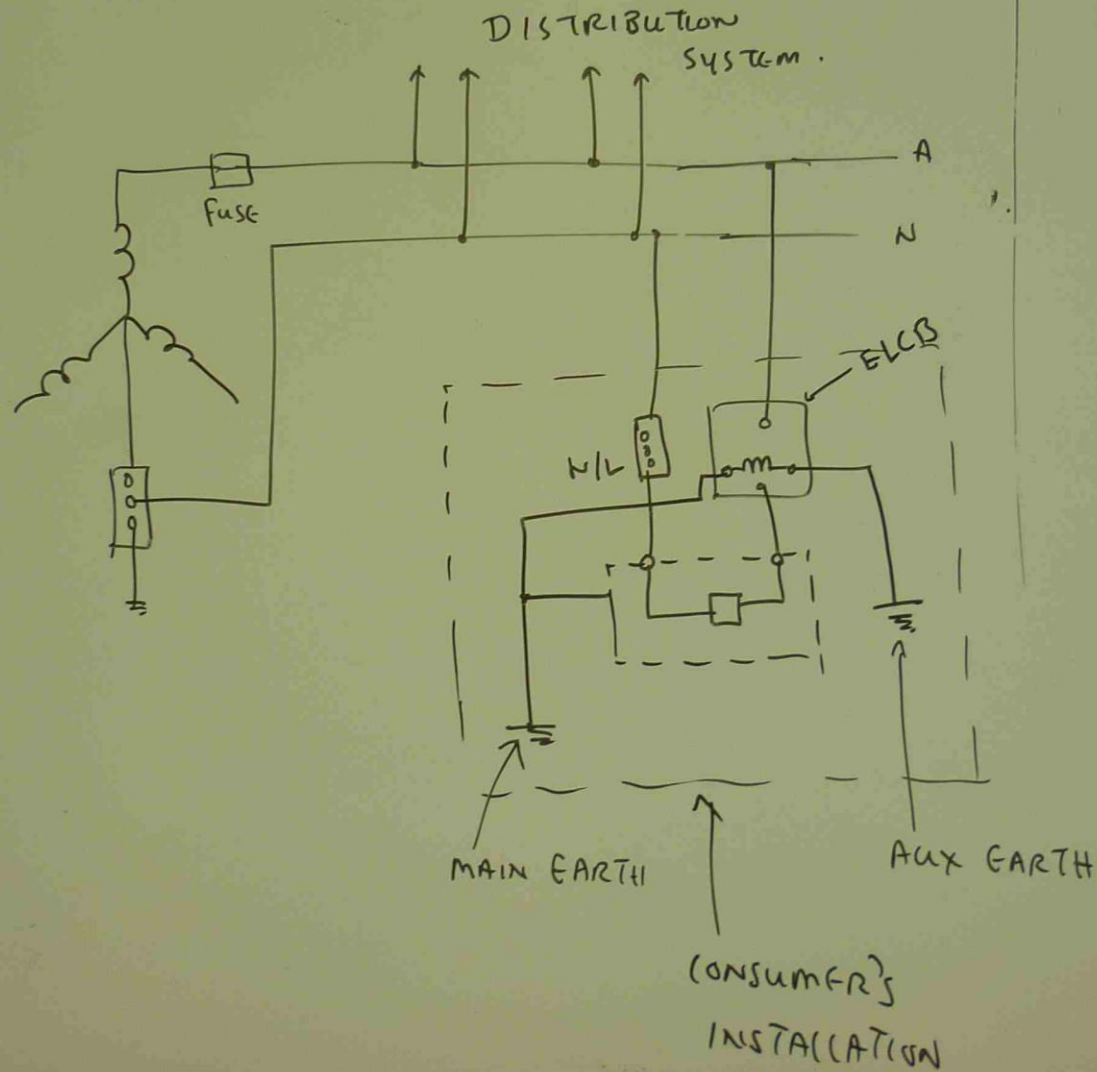 DISTRIBUTION
SYSTEM.
A
Fuse
N
ELCB
N/L
MAIN EARTH
AUX EARTH
CONSUMER'S
INSTALLATION